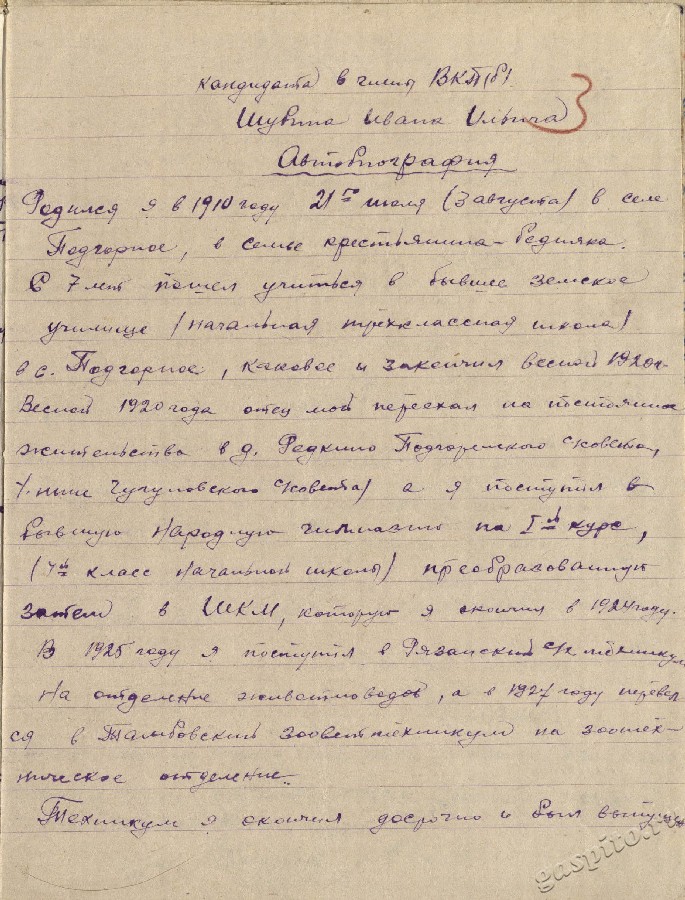 кандидата в члены ВКП(б).
3
Шувина Ивана Ильича
Автобиография
Родился я в 1910 году 21го июля (3 августа) в селе
Подгорное, в семье крестьянина-бедняка.
С 7 лет пошел учиться в бывшее земское
училище (начальная трехклассная школа)
в с. Подгорное, каковое и закончил весной 1920г.
Весной 1920 года отец мой переехал на постоянное
жительство в д. Редкино Подгоренского с/совета,
(ныне с/совета) а я поступил в
бывшую народную гимназию на Iый курс,
(4й класс начальной школы) преобразованную
затем в ШКМ, которую я окончил в 1924 году.
В 1925 году я поступил в Рязанский с/х техникум
на отделение животноводов, а в 1927 году перевел-
ся в Тамбовский зооветтехникум на зоотех-
ническое отделение.
Техникум я окончил досрочно и был выпущен
gaspito.ru